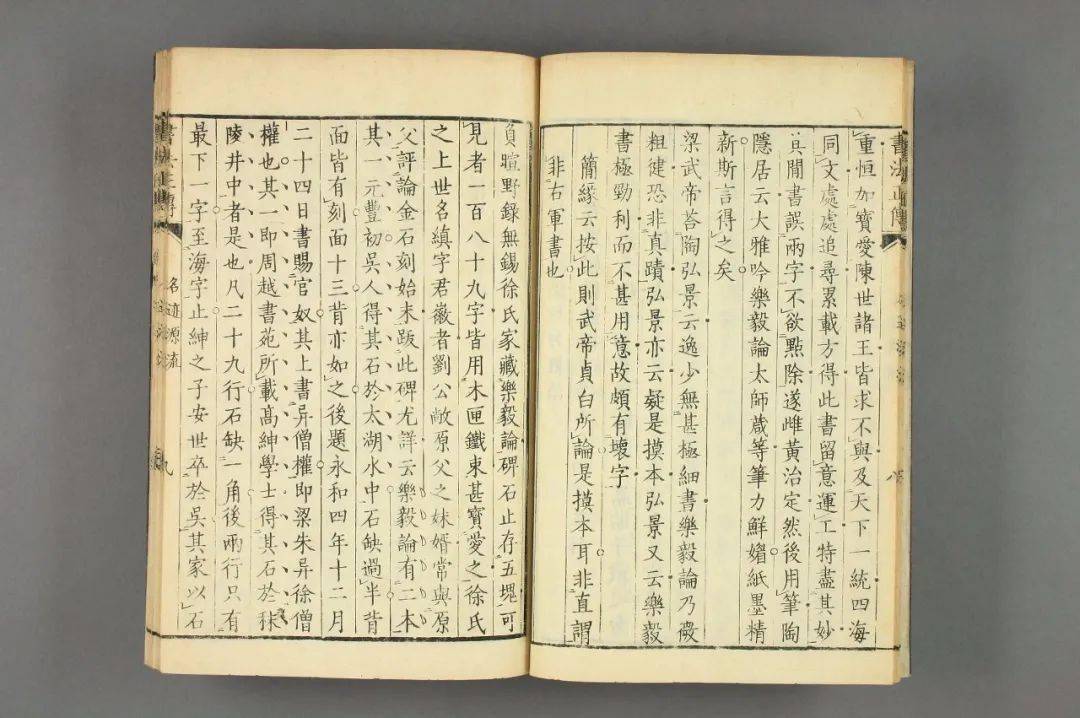 書法正傳
重恒加寶愛陳世諸王皆求不與及天下一統四海
同文處處追尋累載方得此書留意運工特盡其妙
其閒書誤兩字不欲點除遂雌黃治定然後用筆陶
隱居云大雅吟樂毅論太師葴等筆力鮮媚紙墨精
新斯言得之矣
梁武帝荅陶弘景云逸少無甚極細書樂毅論乃㣲
粗徤恐非真蹟弘景亦云疑是摸本弘景又云樂毅
書極勁利而不甚用意故頗有壞字
簡緣云按此則武帝貞白所論是摸本耳非直謂
非右軍書也
負暄野錄無錫徐氏家藏樂毅論碑石止存五塊可
見者一百八十九字皆用木匣鐵束甚寶愛之徐氏
之上世名縝字君徽者劉公敞原父之妹婿常與原
父評論金石刻始末跋此碑尤詳云樂毅論有二本
其一元豐初吳人得其石於太湖水中石缺過半背
面皆有刻面十三背亦如之後題永和四年十二月
二十四日書賜官奴其上書异僧權即梁朱异徐僧
權也其一即周越書苑所載高紳學士得其石於秣
陵井中者是也凡二十九行石缺一角後兩行只有
最下一字至海字止紳之子安世卒於吳其家以石
名迹源流
九